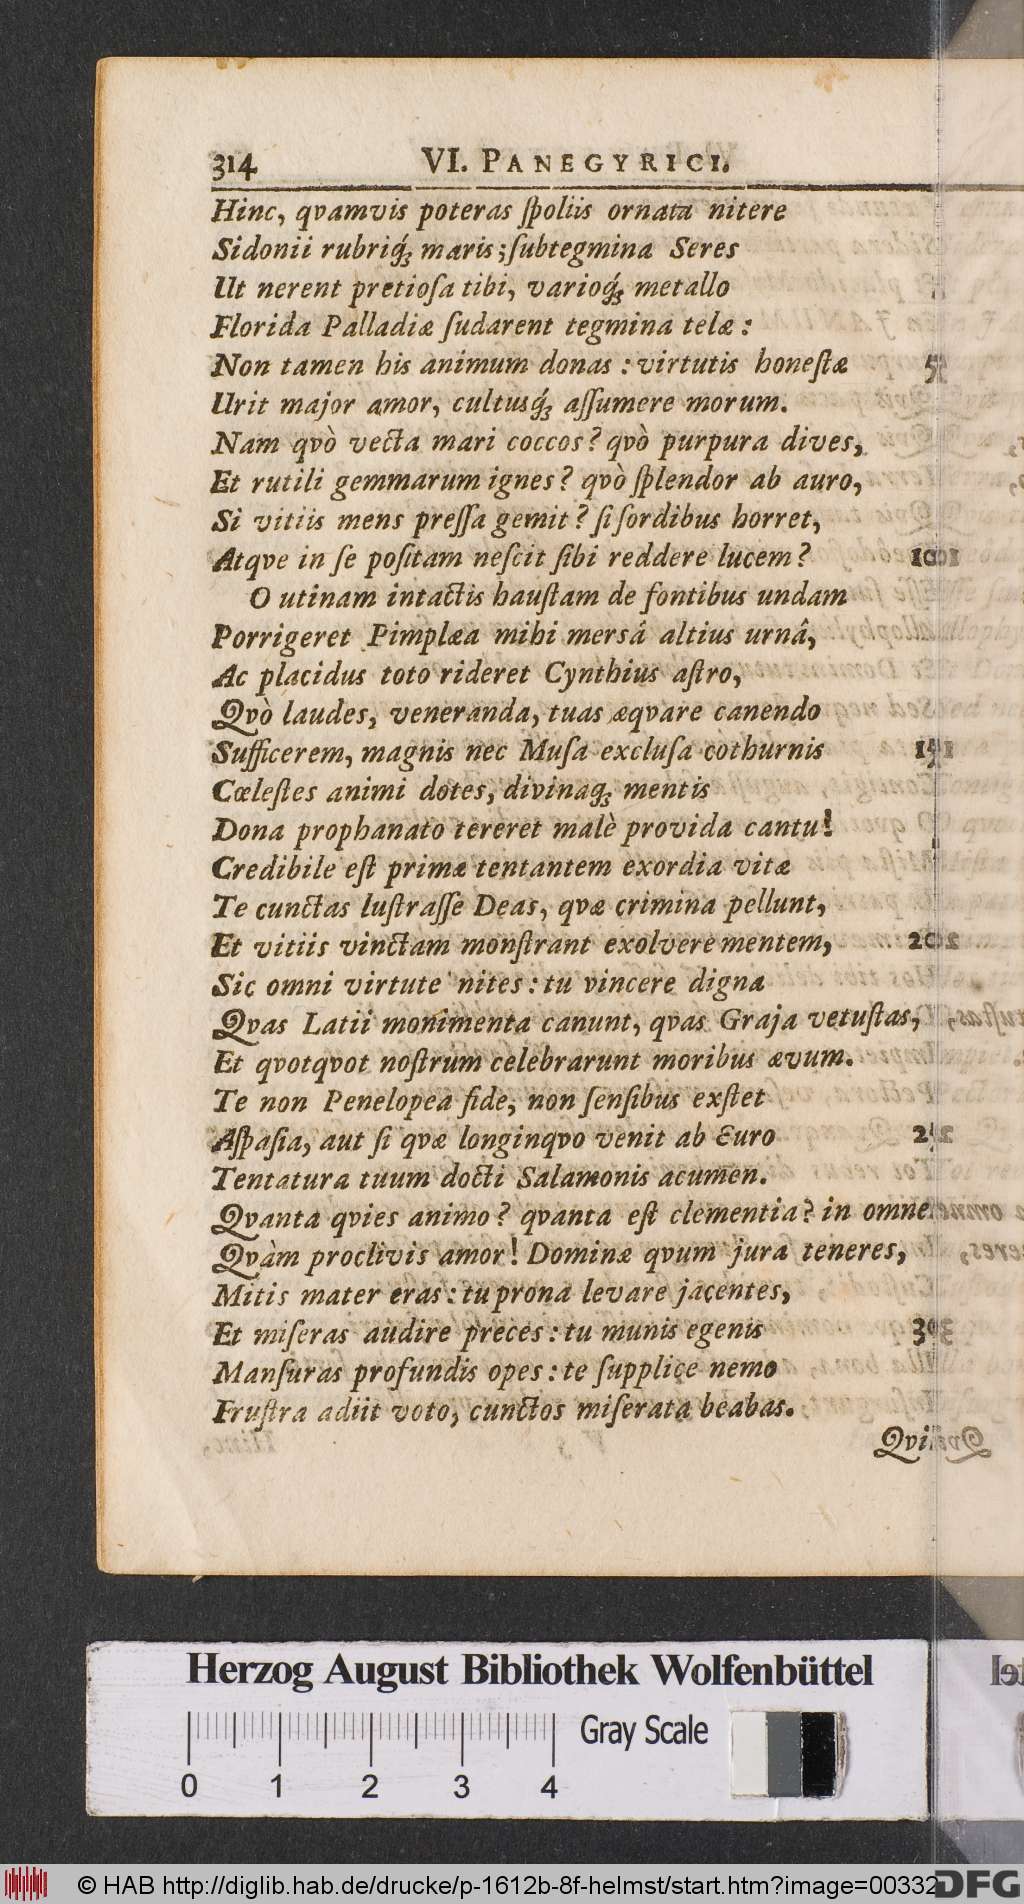 314 VI. PANEGYRICI.
Hinc, qvamvis poteras ſpoliis ornata nitere
Sidonii rubriq́ꝫ maris; ſubtegmina Seres
Ut nerent pretioſa tibi, varioq́ꝫ metallo
Florida Palladiæ ſudarent tegmina telæ:
Non tamen his animum donas: virtutis honeſtæ 5
Urit major amor, cultusq́ꝫ aſſumere morum.
Nam qvò vecta mari coccos? qvò purpura dives,
Et rutili gemmarum ignes? qvò ſplendor ab auro,
Si vitiis mens preſſa gemit? ſi ſordibus horret,
Atqve in ſe poſitam neſcit ſibi reddere lucem? 10
O utinam intactis hauſtam de fontibus undam
Porrigeret Pimplæa mihi mersâ altius urnâ,
Ac placidus toto rideret Cynthius aſtro,
Qvò laudes, veneranda, tuas æqvare canendo
Sufficerem, magnis nec Muſa excluſa cothurnis 15
Cœleſtes animi dotes, divinaqꝫ mentis
Dona prophanato tereret malè provida cantu!
Credibile eſt primæ tentantem exordia vitæ
Te cunctas luſtraſſe Deas, qvæ crimina pellunt,
Et vitiis vinctam monſtrant exolvere mentem, 20
Sic omni virtute nites: tu vincere digna
Qvas Latii monimenta canunt, qvas Graja vetuſtas,
Et qvotqvot noſtrum celebrarunt moribus ævum.
Te non Penelopea fide, non ſenſibus exſtet
Aſpaſia, aut ſi qvæ longinqvo venit ab Euro 25
Tentatura tuum docti Salamonis acumen.
Qvanta qvies animo? qvanta eſt clementia? in omne
Qvàm proclivis amor! Dominæ qvum jura teneres,
Mitis mater eras: tu prona levare jacentes,
Et miſeras audire preces: tu munis egenis 30
Manſuras profundis opes: te ſupplice nemo
Fruſtra adiit voto, cunctos miſerata beabas.
Qvi
Herzog August Bibliothek Wolfenbüttel
Gray Scale
0 1 2 3 4
© HAB http://diglib.hab.de/drucke/p-1612b-8f-helmst/start.htm?image=00332
DFG